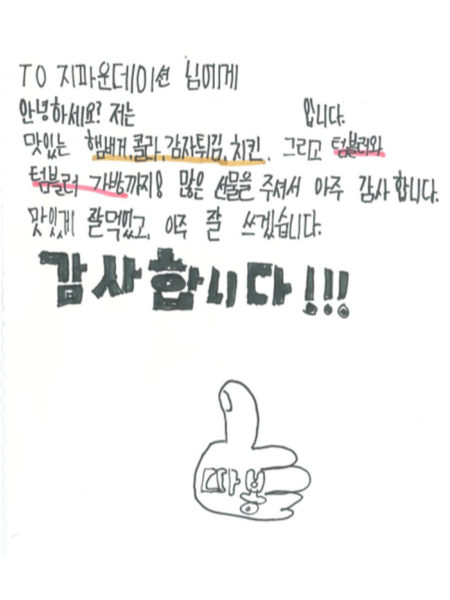 TO 지파운데이션 님에게
안녕하세요? 저는 입니다.
맛있는 햄버거, 콜라, 감자튀김, 치킨. 그리고 텀블러와
텀블러 가방까지! 많은 선물을 주셔서 아주 감사합니다.
맛있게 잘먹었고, 아주 잘 쓰겠습니다.
감사합니다!!!
따봉